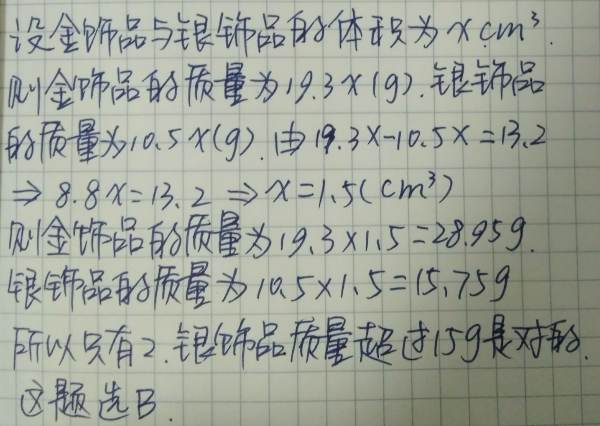 设金饰品与银饰品的体积为xcm³.
则金饰品的质量为19.3x(g).银饰品
的质量为10.5x(g).由19.3x-10.5x=13.2
⇒ 8.8x=13.2 ⇒ x=1.5(cm³)
则金饰品的质量为19.3×1.5=28.95g.
银饰品的质量为10.5×1.5=15.75g
所以只有2.银饰品质量超过15g是对的.
这题选B.